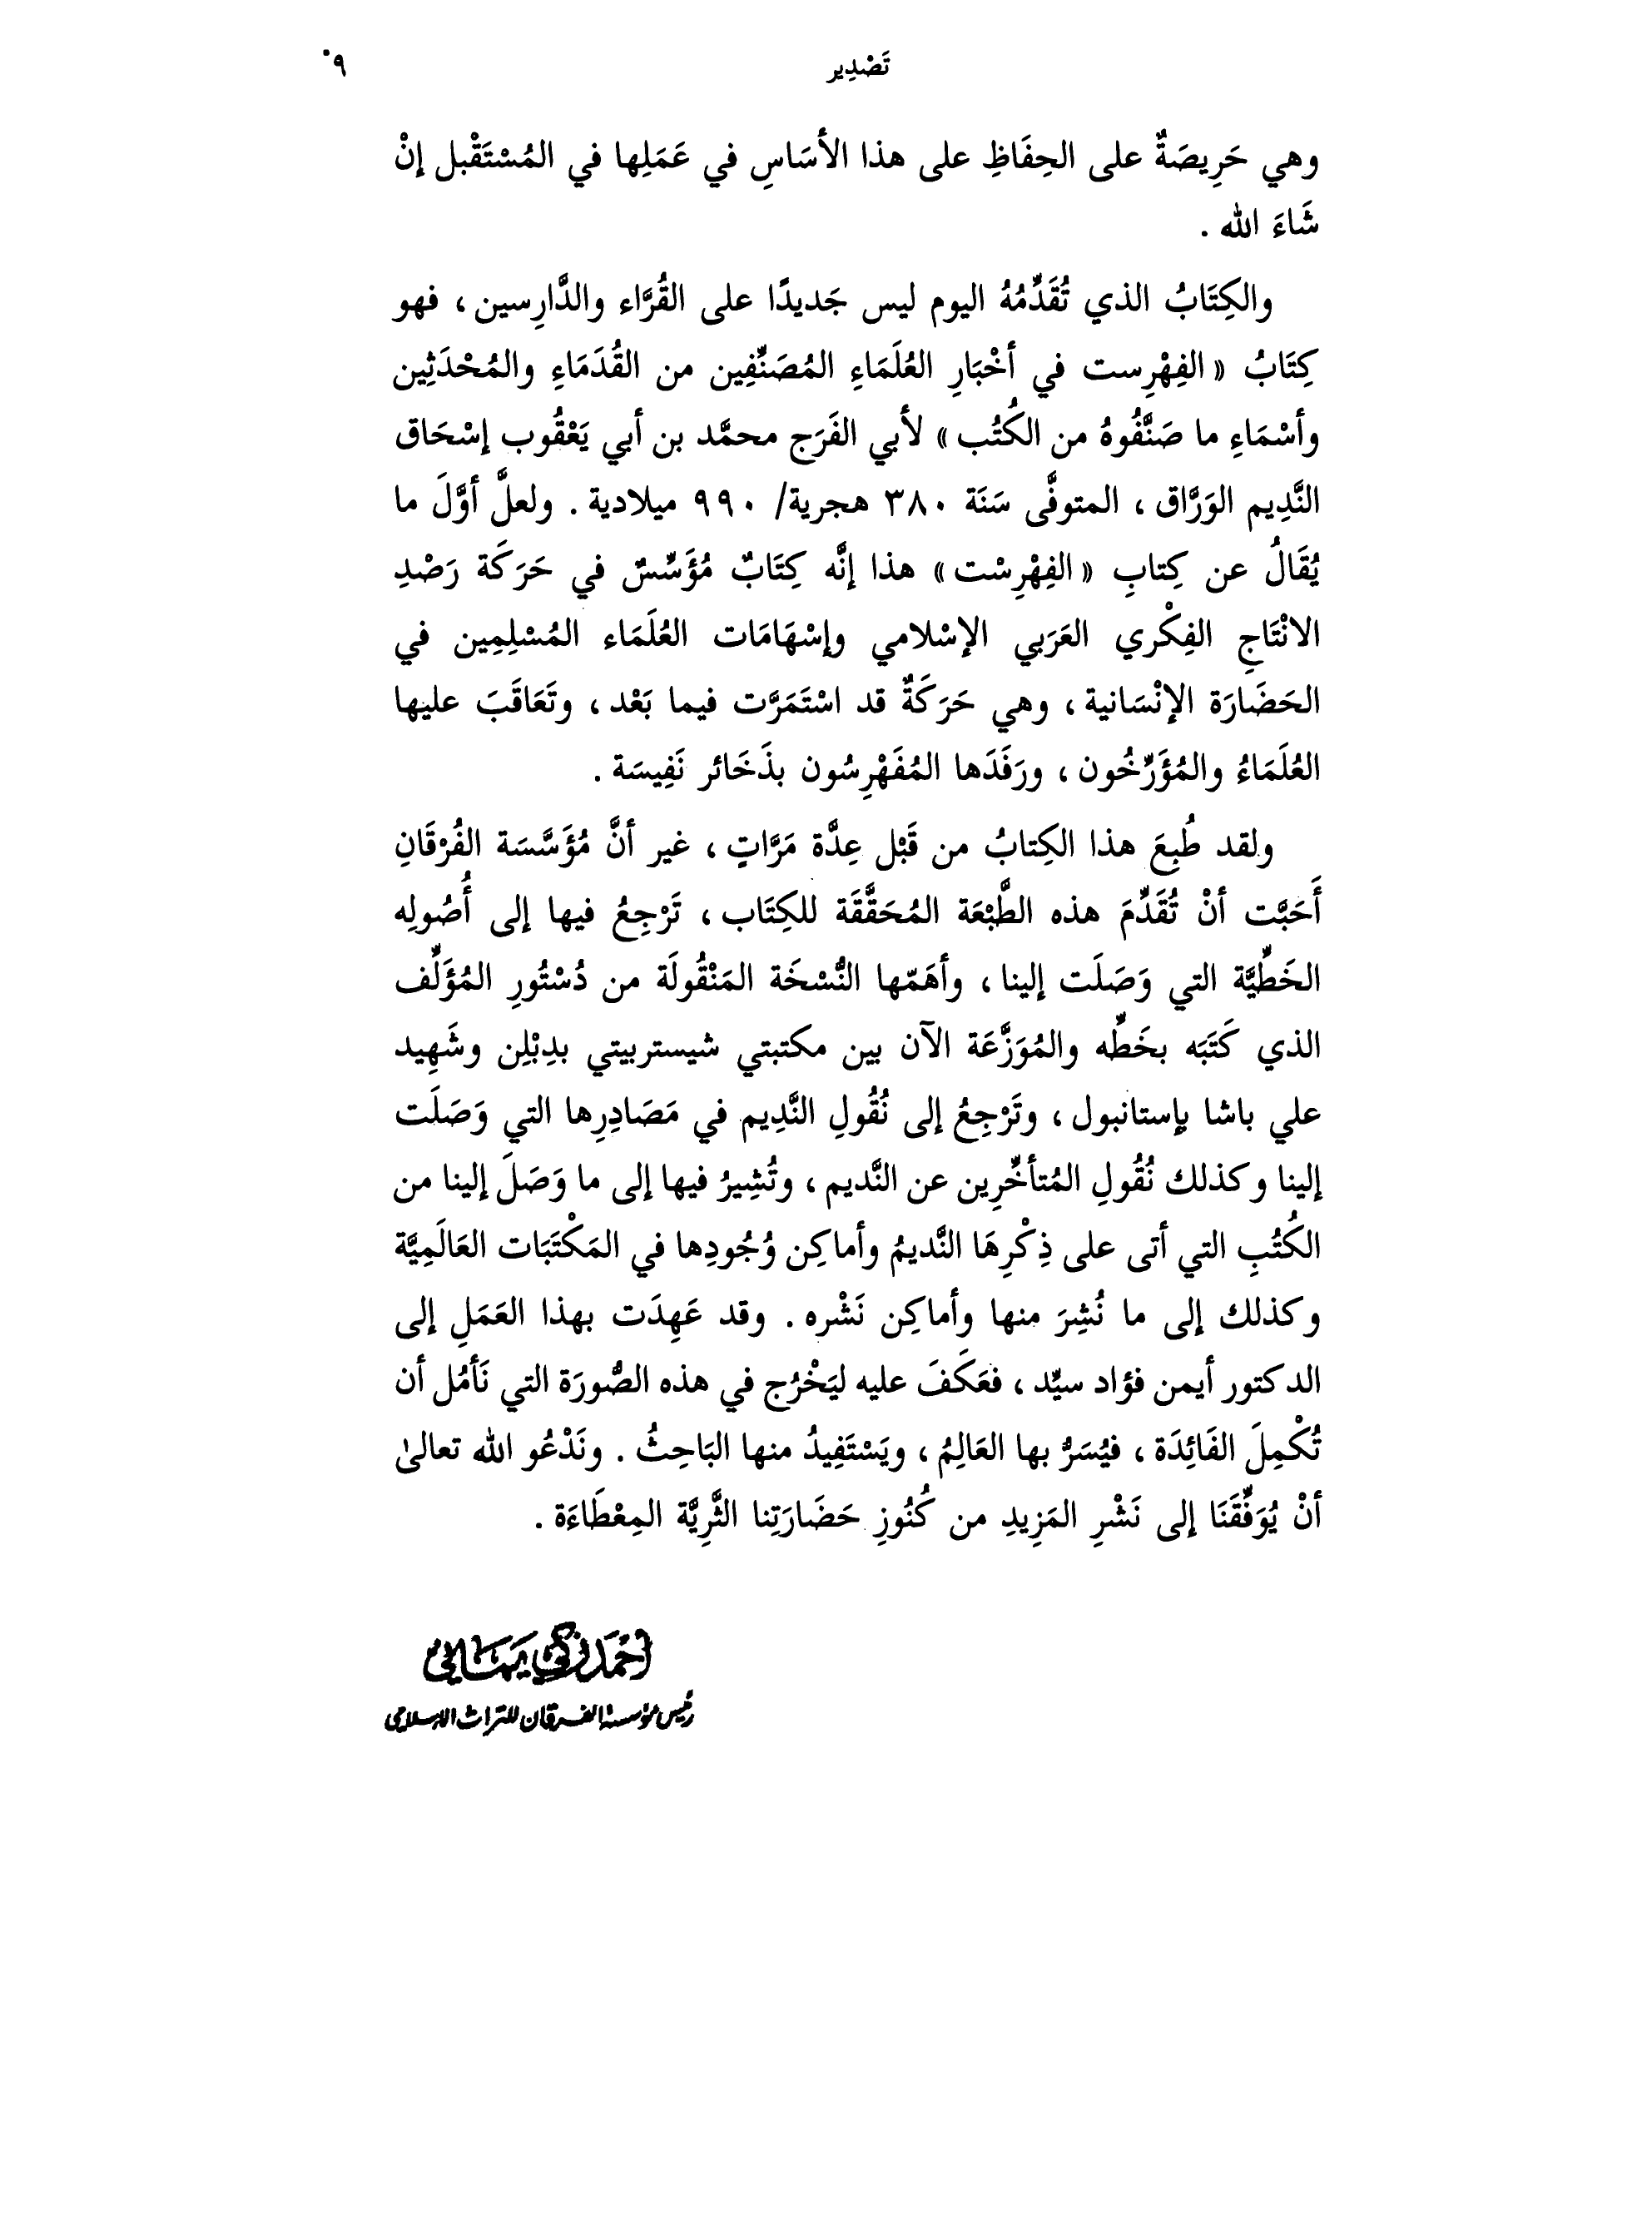 تَصْدِير ٩*
وهي حَرِيصَةٌ على الحِفَاظِ على هذا الأسَاسِ في عَمَلِها في المُسْتَقْبل إنْ
شَاءَ الله .
والكِتَابُ الذي تُقَدِّمُهُ اليوم ليس جَديدًا على القُرَّاء والدَّارِسين ، فهو
كِتَابُ « الفِهْرِست في أخْبَارِ العُلَمَاءِ المُصَنِّفِين من القُدَمَاءِ والمُحْدَثِين
وأسْمَاءِ ما صَنَّفُوهُ من الكُتُب » لأبي الفَرَج محمَّد بن أبي يَعْقُوب إسْحَاق
النَّدِيم الوَرَّاق ، المتوفَّى سَنَة ٣٨٠ هجرية/ ٩٩٠ ميلادية . ولعلَّ أوَّلَ ما
يُقَالُ عن كِتابِ « الفِهْرِسْت » هذا إنَّه كِتَابٌ مُؤَسِّسٌ في حَرَكَة رَصْدِ
الانْتَاجِ الفِكْري العَرَبي الإسْلامي وإسْهَامَات العُلَمَاء المُسْلِمِين في
الحَضَارَة الإنْسَانية ، وهي حَرَكَةٌ قد اسْتَمَرَّت فيما بَعْد ، وتَعَاقَبَ عليها
العُلَمَاءُ والمُؤَرِّخُون ، ورَفَدَها المُفَهْرِسُون بذَخَائر نَفِيسَة .
ولقد طُبِعَ هذا الكِتابُ من قَبْل عِدَّة مَرَّاتٍ ، غير أنَّ مُؤَسَّسَة الفُرْقَانِ
أَحَبَّت أنْ تُقَدِّمَ هذه الطَّبْعَة المُحَقَّقَة للكِتَاب ، تَرْجِعُ فيها إلى أُصُولِه
الخَطِّيَّة التي وَصَلَت إلينا ، وأهَمّها النُّسْخَة المَنْقُولَة من دُسْتُورِ المُؤَلِّف
الذي كَتَبَه بخَطِّه والمُوَزَّعَة الآن بين مكتبتي شيستربيتي بدِبْلِن وشَهِيد
علي باشا بإستانبول ، وتَرْجِعُ إلى نُقُولِ النَّدِيم في مَصَادِرِها التي وَصَلَت
إلينا وكذلك نُقُولِ المُتأخِّرِين عن النَّديم ، وتُشِيرُ فيها إلى ما وَصَلَ إلينا من
الكُتُبِ التي أتى على ذِكْرِهَا النَّديمُ وأماكِن وُجُودِها في المَكْتَبَات العَالَمِيَّة
وكذلك إلى ما نُشِرَ منها وأماكِن نَشْره . وقد عَهِدَت بهذا العَمَلِ إلى
الدكتور أيمن فؤاد سيِّد ، فعَكَفَ عليه ليَخْرُج في هذه الصُّورَة التي نَأمُل أن
تُكْمِلَ الفَائِدَة ، فيُسَرُّ بها العَالِمُ ، ويَسْتَفِيدُ منها البَاحِثُ . ونَدْعُو الله تعالىٰ
أنْ يُوَفِّقَنَا إلى نَشْرِ المَزِيدِ من كُنُوزِ حَضَارَتِنا الثَّرِيَّة المِعْطَاءَة .
أحمد زكي يماني
رئيس مؤسسة الفرقان للتراث الإسلامي